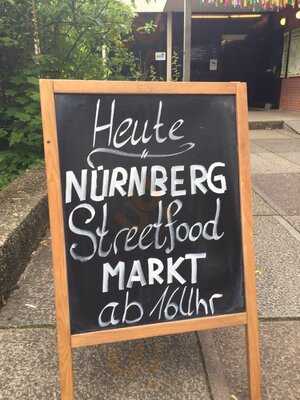 Heute
NÜRNBERG
Streetfood
MARKT
ab 16 Uhr